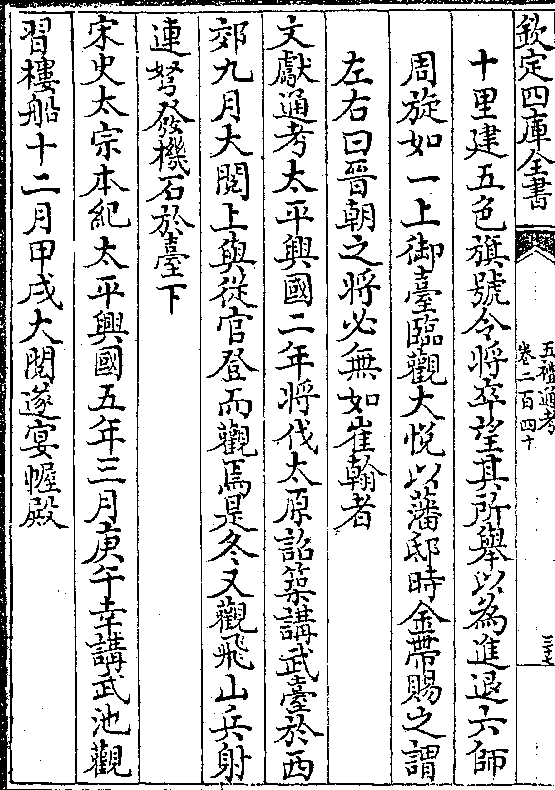 欽定四庫全書
五禮通考
卷二百四十
十里建五色旗號令將卒望其所舉以為進退六師
周旋如一上御臺臨觀大悅以藩邸時金帶賜之謂
左右曰晉朝之將必無如崔翰者
文獻通考太平興國二年將伐太原詔築講武臺於西
郊九月大閱上與從官登而觀焉是冬又觀飛山兵射
連弩發機石於臺下
宋史太宗本紀太平興國五年三月庚午幸講武池觀
習樓船十二月甲戌大閱遂宴幄殿